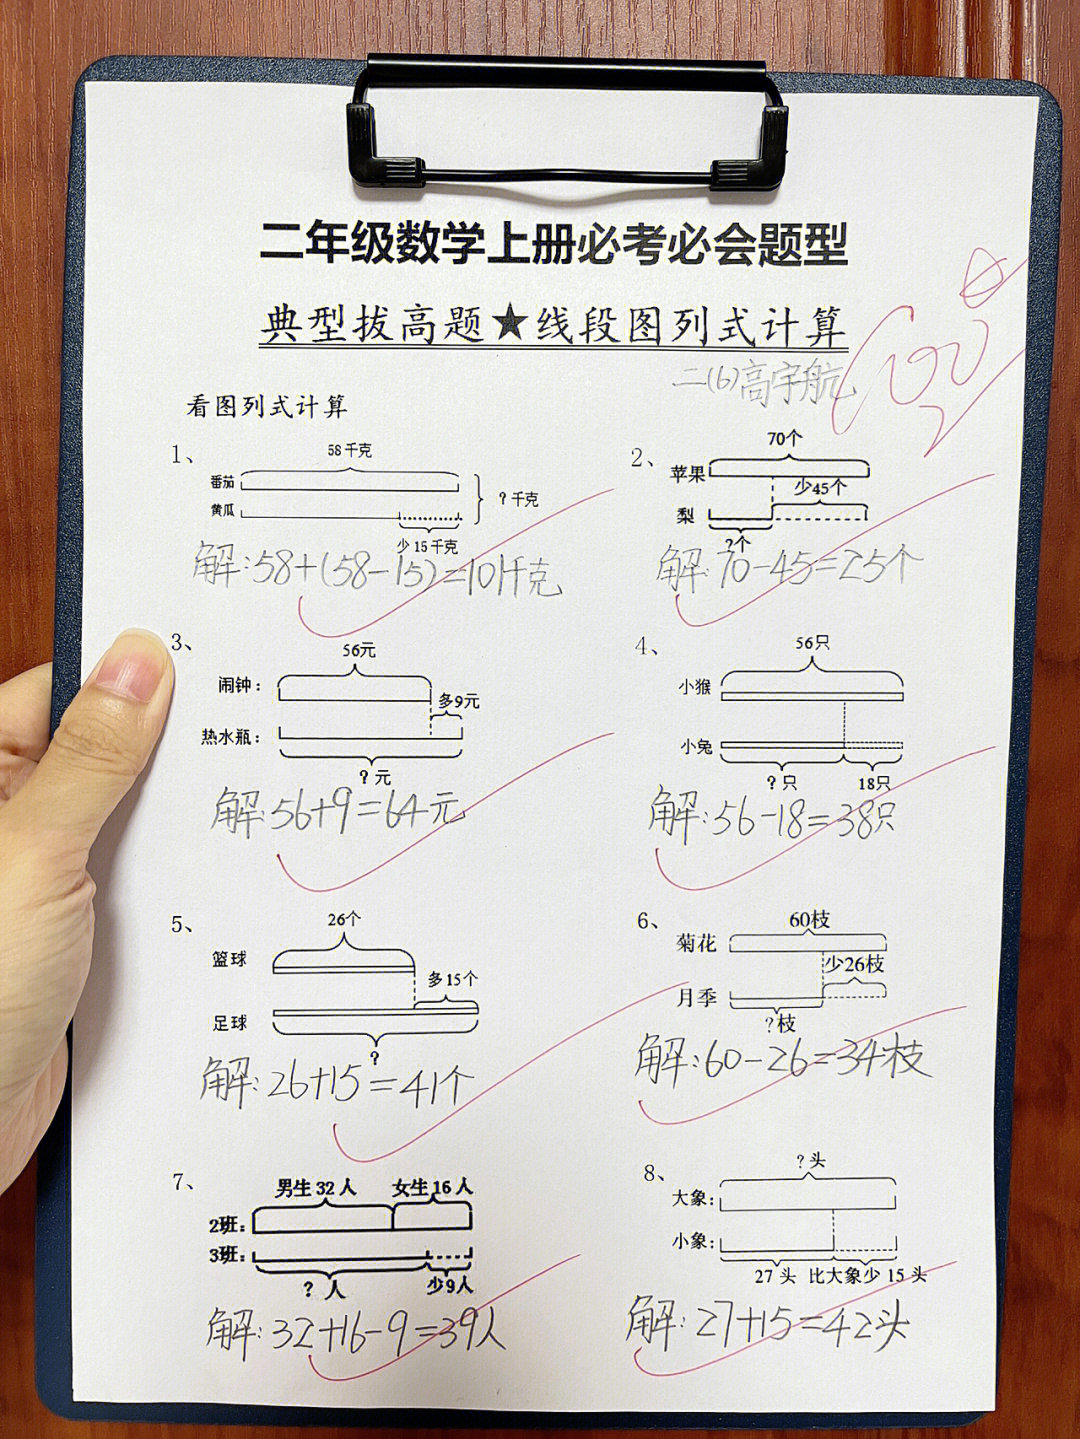 二年级数学上册必考必会题型
典型拔高题★线段图列式计算
二(6)高宇航
100
看图列式计算
1、
58千克
番茄
黄瓜
?千克
少15千克
解:58+(58-15)=101千克
2、
70个
苹果
少45个
梨
?个
解:70-45=25个
3、
56元
闹钟:
多9元
热水瓶:
?元
解:56+9=64元
4、
56只
小猴
小兔
?只 18只
解:56-18=38只
5、
26个
篮球
多15个
足球
?
解:26+15=41个
6、
60枝
菊花
少26枝
月季
?枝
解:60-26=34枝
7、
男生32人 女生16人
2班:
3班:
?人 少9人
解:32+16-9=39人
8、
?头
大象:
小象:
27头 比大象少15头
解:27+15=42头